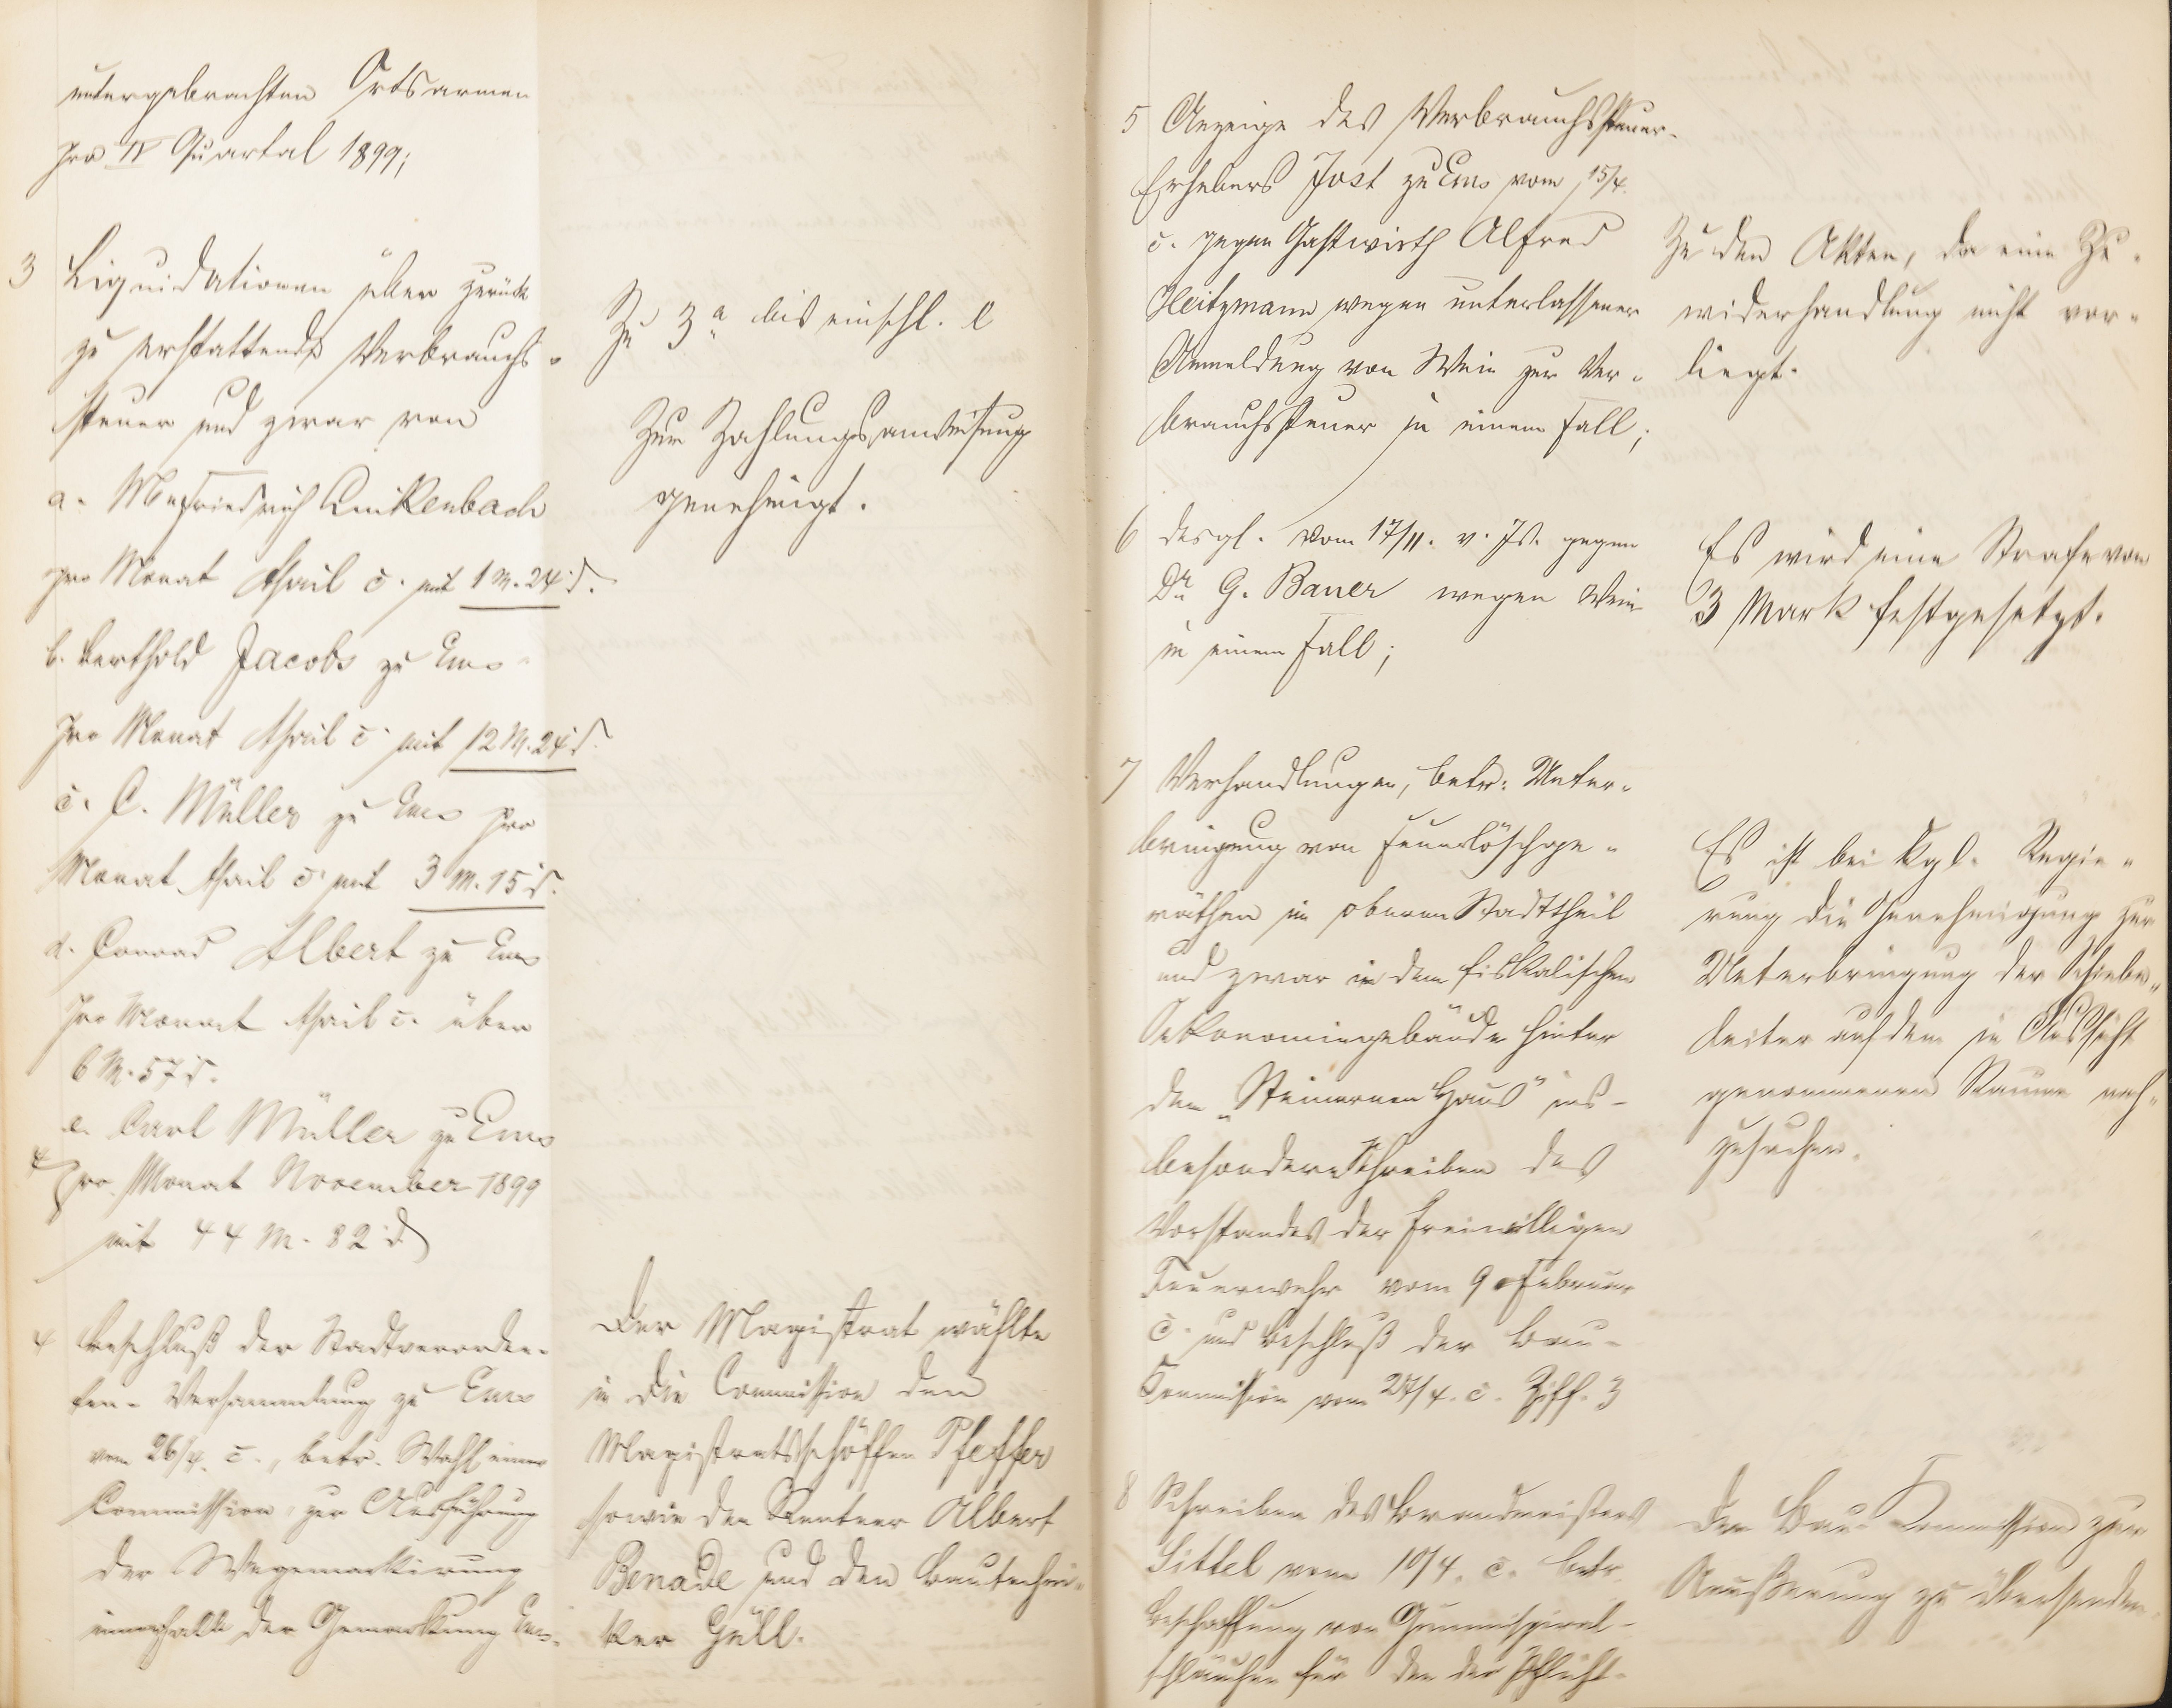 untergebrachten Ortsarmen
pro IV Quartal 1899;
3 Liquidationen über zurück
zu erstattende Verbrauchs-
steuer und zwar von
a. Friedrich Linkenbach
pro Monat April c. mit 1 M. 24 d.
b. Berthold Jacobs zu Ems
pro Monat April c. mit 12 M. 24 d.
c. C. Müller zu Ems pro
Monat April c. mit 3 M. 15 d.
d. Conrad Albert zu Ems
pro Monat April c. über
6 M. 57 d.
e. Carl Müller zu Ems
pro Monat November 1899
mit 44 M. 82 d
Zu 3 a bis einschl. e
Zur Zahlungsanweisung
genehmigt.
4 Beschluß der Stadtverordne-
ten-Versammlung zu Ems
vom 26/4. c., betr. Wahl einer
Commission zur Ausführung
der Wegemarkirung
innerhalb der Gemarkung Ems.
Der Magistrat wählte
in die Commission den
Magistratsschöffen Pfeffer
sowie den Rentner Albert
Benade und den Bautechni-
ker Güll.
5 Anzeige des Verbrauchssteuer-
Erhebers Jost zu Ems vom 15/4.
c. gegen Gastwirth Alfred
Heitzmann wegen unterlassener
Anmeldung von Wein zur Ver-
brauchssteuer in einem Fall;
Zu den Akten, da eine Zu-
widerhandlung nicht vor-
liegt.
6 desgl. vom 17/11. v. Js. gegen
Dr G. Bauer wegen Wein
in einem Fall;
Es wird eine Strafe von
3 Mark festgesetzt.
7 Verhandlungen, betr: Unter-
bringung von Feuerlöschge-
räthen im oberen Stadttheil
und zwar in dem fiskalischen
Oekonomiegebäude hinter
dem "Steinernen Haus" ins-
besondere Schreiben des
Vorstandes der freiwilligen
Feuerwehr vom 9. Februar
c. und Beschluß der Bau-
Commission vom 27/4. c. Ziff. 3
Es ist bei Kgl. Regie-
rung die Genehmigung zur
Unterbringung der Schiebe-
leiter auf dem in Aussicht
genommenen Raume nach-
zusuchen.
8 Schreiben des Brandmeisters
Sittel vom 10/4. c. betr.
Beschaffung von Gummispiral-
schläuchen für den der Pflicht-
Der Bau-Commission zur
Aeußerung zu übersenden.